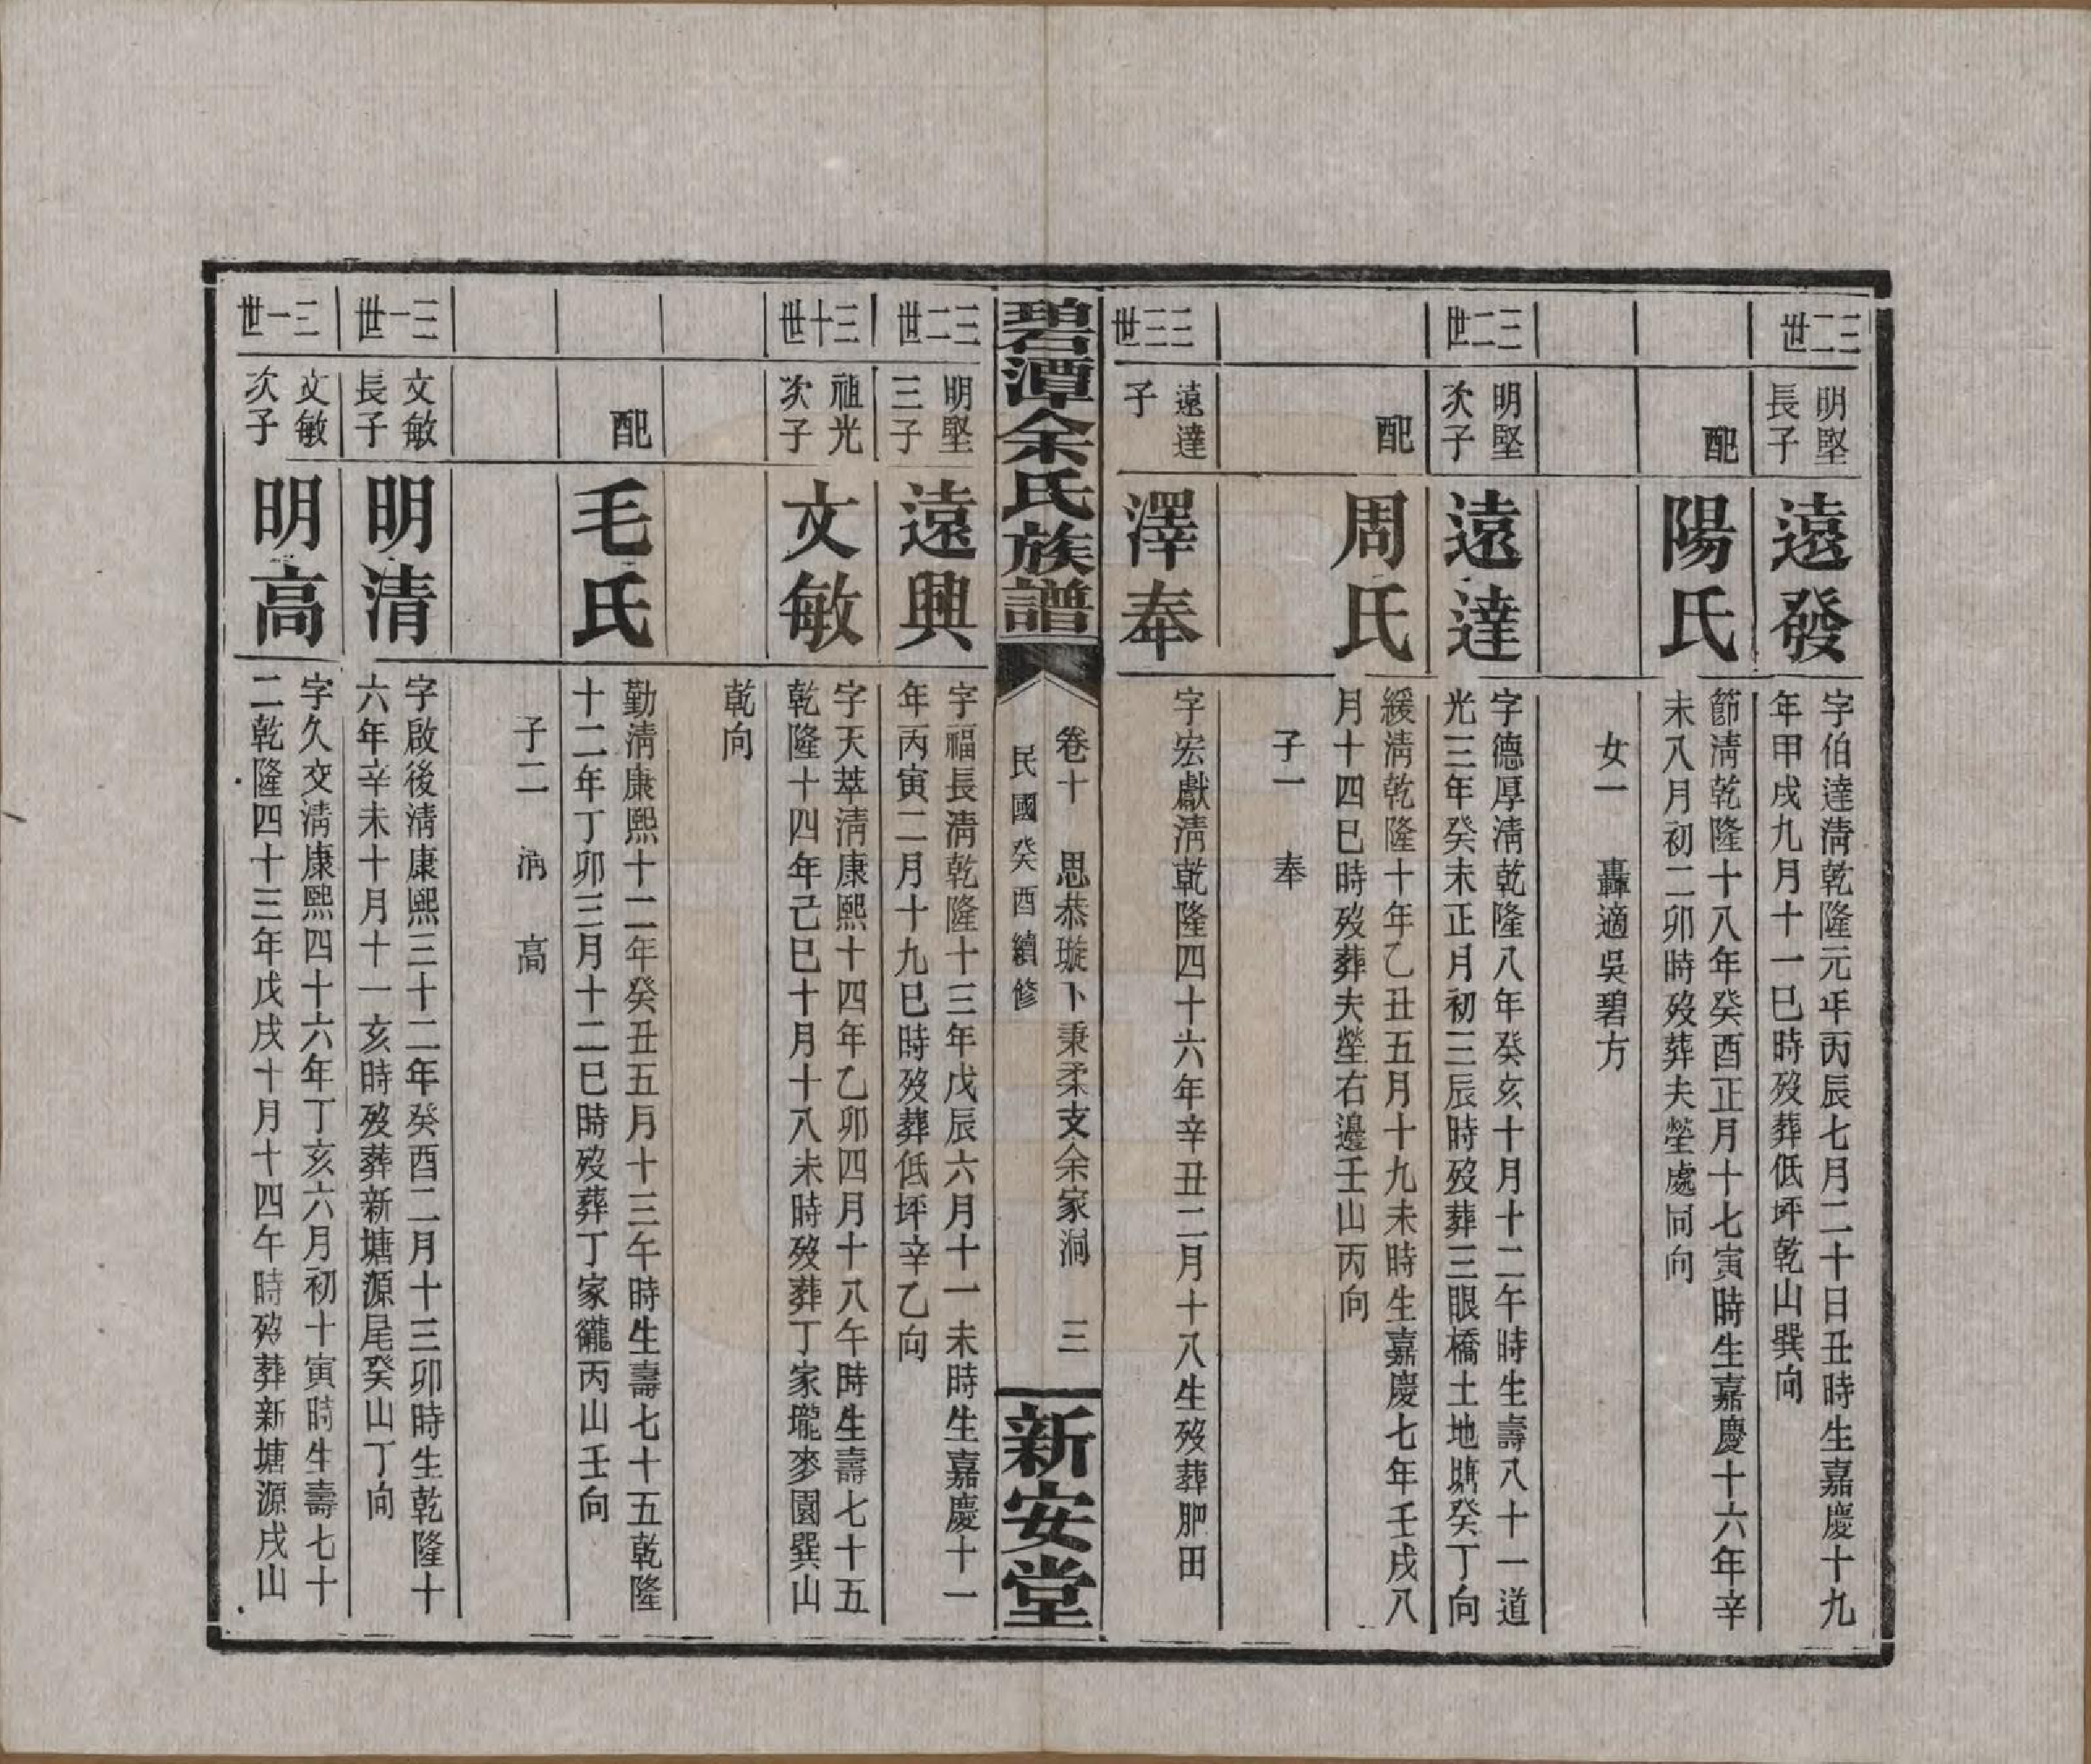 三二世
明堅
長子
遠發
字伯達淸乾隆元年丙辰七月二十日丑時生嘉慶十九
年甲戌九月十一巳時歿葬低坪乾山巽向
配
陽氏
節淸乾隆十八年癸酉正月十七寅時生嘉慶十六年辛
未八月初二卯時歿葬夫塋處同向
女一 轟適吳碧方
三二世
明堅
次子
遠達
字德厚淸乾隆八年癸亥十月十二午時生壽八十一道
光三年癸未正月初三辰時歿葬三眼橋土地塘癸丁向
配
周氏
緩淸乾隆十年乙丑五月十九未時生嘉慶七年壬戌八
月十四巳時歿葬夫塋右邊壬山丙向
子一 奉
三三世
遠達
子
澤奉
字宏獻淸乾隆四十六年辛丑二月十八生歿葬肥田
碧潭余氏族譜
卷十 思恭璇卜秉柔支余家洞 三
民國癸酉續修
新安堂
三二世
明堅
三子
遠興
字福長淸乾隆十三年戊辰六月十一未時生嘉慶十一
年丙寅二月十九巳時歿葬低坪辛乙向
三十世
祖光
次子
文敏
字天萃淸康熙十四年乙卯四月十八午時生壽七十五
乾隆十四年己巳十月十八未時歿葬丁家壠麥園巽山
乾向
配
毛氏
勤淸康熙十二年癸丑五月十三午時生壽七十五乾隆
十二年丁卯三月十二巳時歿葬丁家巃丙山壬向
子二 淸 高
三一世
文敏
長子
明清
字啟後淸康熙三十二年癸酉二月十三卯時生乾隆十
六年辛未十月十一亥時歿葬新塘源尾癸山丁向
三一世
文敏
次子
明高
字久交淸康熙四十六年丁亥六月初十寅時生壽七十
二乾隆四十三年戊戌十月十四午時歿葬新塘源戌山